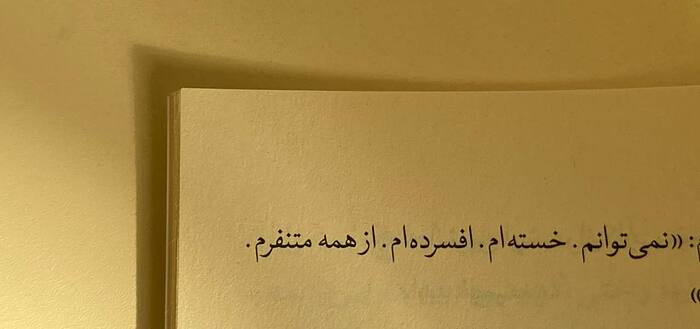 م: «نمی‌توانم. خسته‌ام. افسرده‌ام. از همه متنفرم.
»